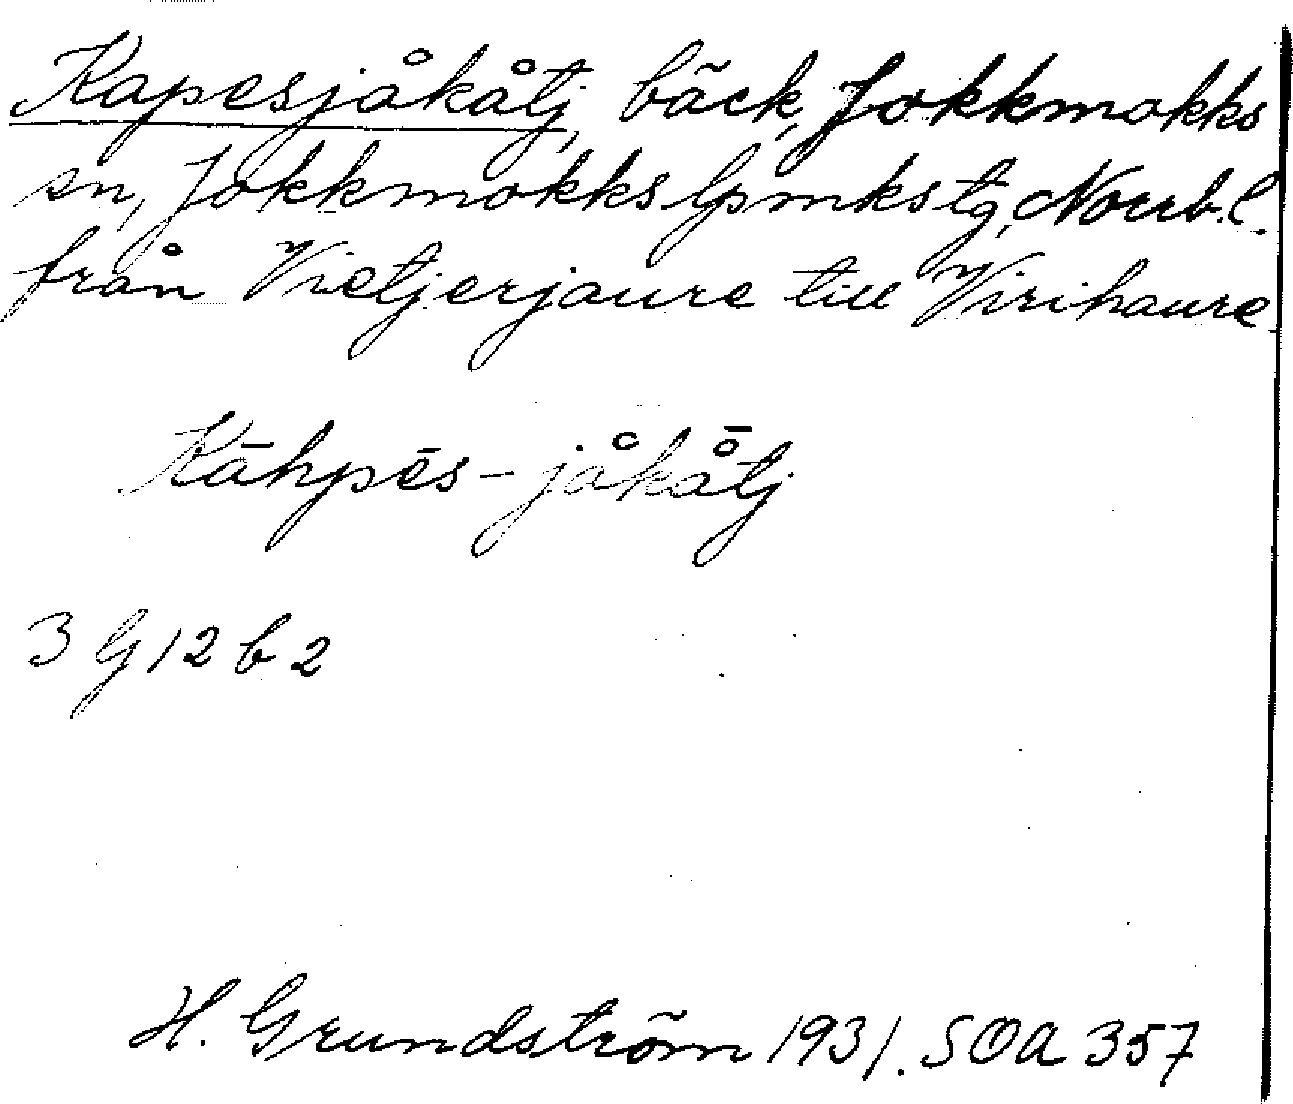 Kapesjåkåtj, bäck, Jokkmokks
sn, Jokkmokks lpmks tg, Norrb.l.
från Vietjerjaure till Virihaure
Kāhpēs-jåkå̄tj
3 G 12 b 2
H. Grundström 1931. SOA 357